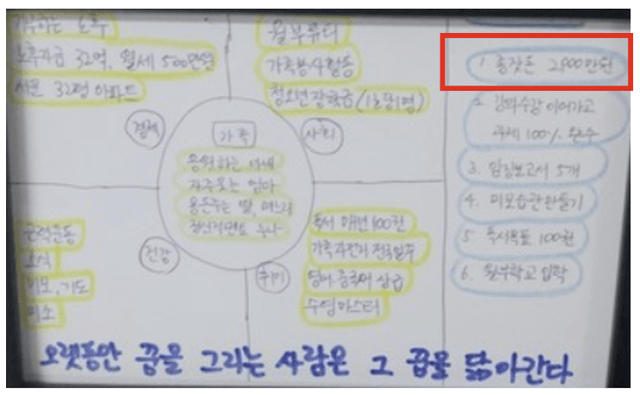 기부하는 노후
노후자금 32억, 월세 500만원
서울 32평 아파트
경제
월부튜터
가족봉사활동
청소년장학금 (1년 1명)
사회
가족
응원하는 아내
자주웃는 엄마
용돈주는 딸, 며느리
정신적멘토 누나
건강
근력운동
소식
미소
취미
독서 매년 100권
가족과전기 전국일주
영어 중국어 상급
수영마스터
1. 종잣돈 2,900만원
2. 강의수강 이어가고
과제 100% 완수
3. 임장보고서 5개
4. 미모습관만들기
5. 독서목표 100권
6. 월부학교 입학
오랫동안 꿈을 그리는 사람은 그 꿈을 닮아간다